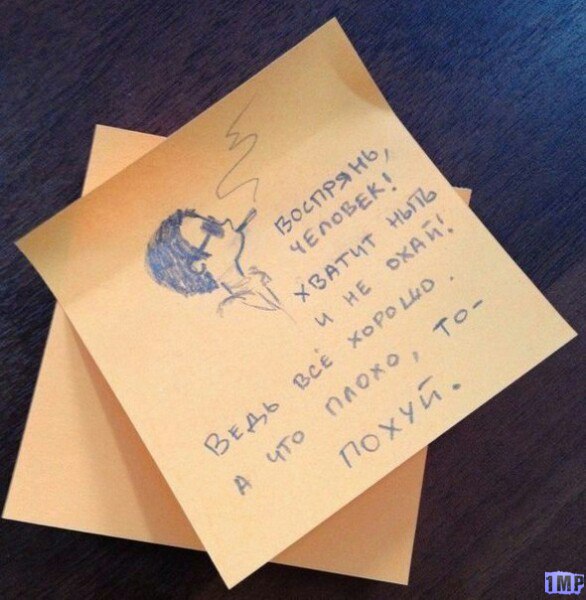 ВОСПРЯНЬ,
ЧЕЛОВЕК!
ХВАТИТ НЫТЬ
И НЕ ОХАЙ!
ВЕДЬ ВСЁ ХОРОШО.
А ЧТО ПЛОХО, ТО-
ПОХУЙ.
1MP